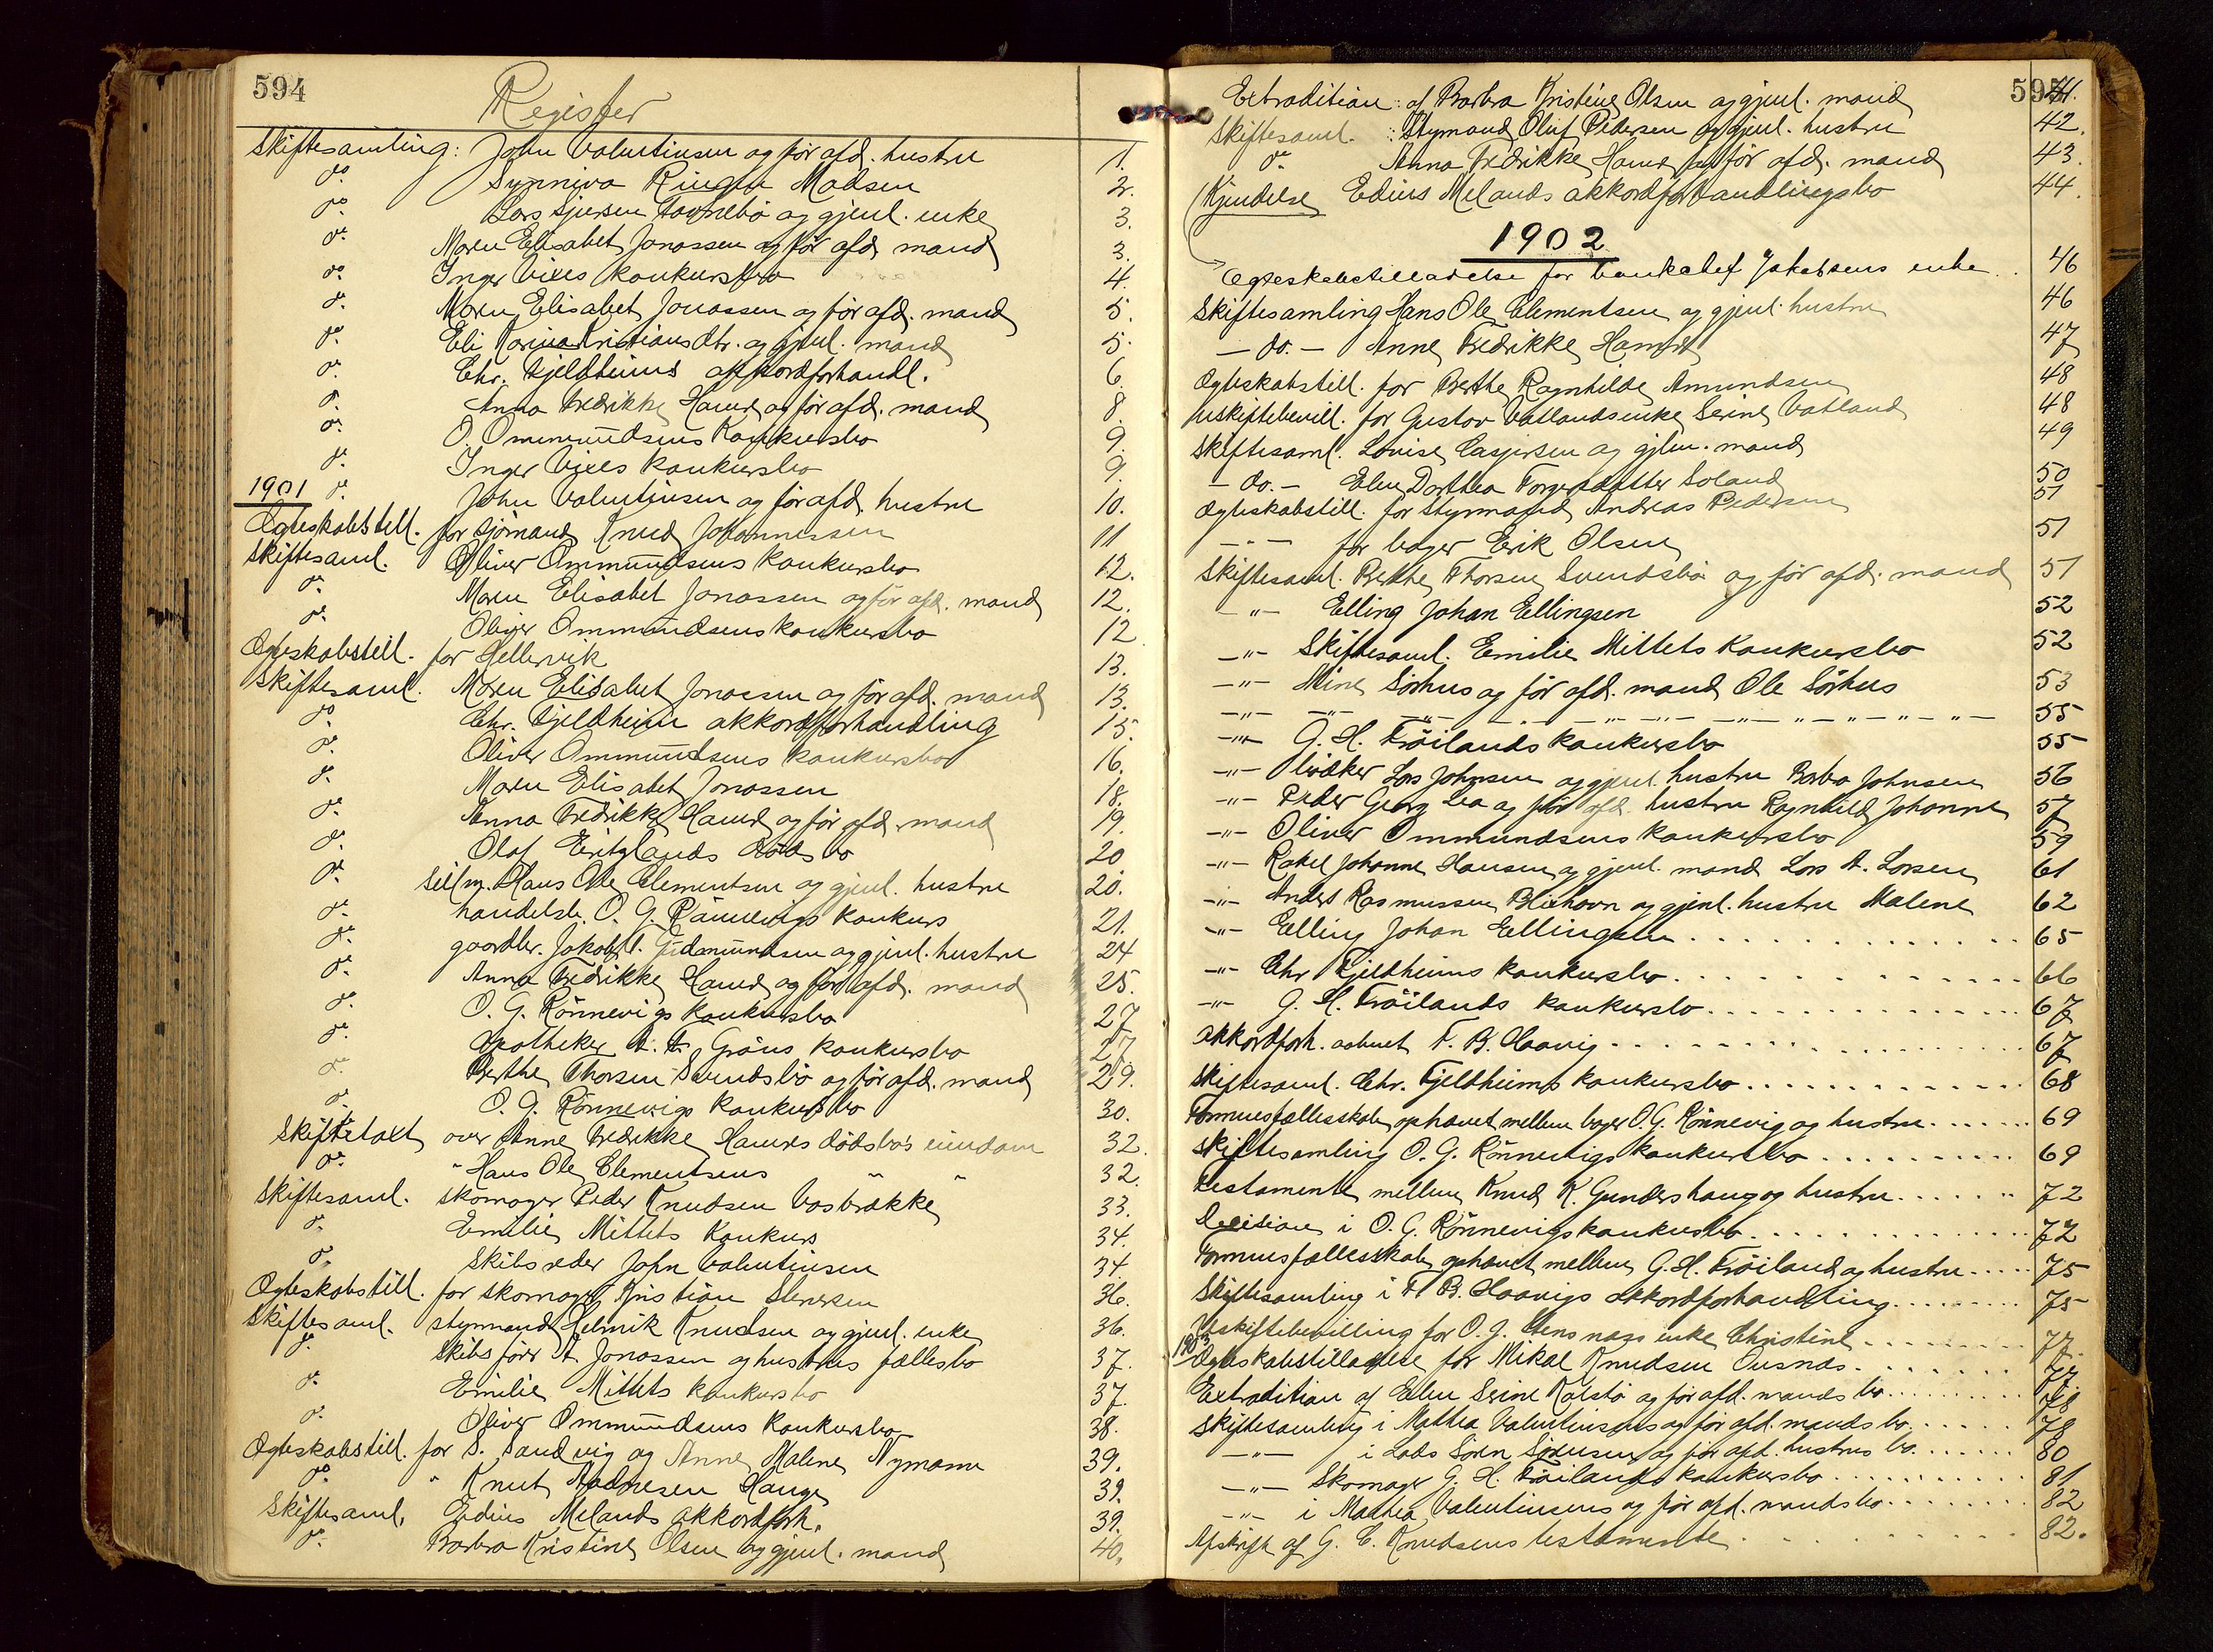 594
Register
Skiftesamling: John Valentinsen og før afd. hustru 1.
do. Synniva Ringen Madsen 2.
do. Lars Sjursen Favnebø og gjenl. enke 3.
do. Maren Elisabet Jonassen og før afd. mand 3.
do. Inger Vixes konkursbo 4.
do. Maren Elisabet Jonassen og før afd. mand 5.
do. Eli Karina Kristiansdtr. og gjenl. mand 5.
do. Chr. Fjeldheims akkordforhandl. 6.
do. Anna Fredrikke Hamre og før afd. mand 8.
do. O. Ommundsens Konkursbo 9.
do. Inger Vixes konkursbo 9.
1901 do. John Valentinsen og før afd. hustru 10.
Ægteskabstill. for sjømand Knud Johannessen 11
Skiftesaml. Oliver Ommundsens konkursbo 12.
do. Maren Elisabet Jonassen og før afd. mand 12.
do. Oliver Ommundsens konkursbo 12
Ægteskabstill. for Hellervik 13.
Skiftesaml. Maren Elisabet Jonassen og før afd. mand 13.
do. Chr. Fjeldheim akkordforhandling 15.
do. Oliver Ommundsens konkursbo 16.
do. Maren Elisabet Jonassen 18.
do. Anna Fredrikke Hamre og før afd. mand 19.
do. Olaf Eritzlands dødsbo 20
do. Seilm. Hans Ole Clementsen og gjenl. hustru 20.
do. handelsb. O. G. Rønnevigs konkurs 21.
do. gaardbr. Jakob T. Gudmundsen og gjenl. hustru 24
do. Anna Fredrikke Hamre og før afd. mand 25.
do. O. G. Rønnevigs konkursbo 27
do. Apotheker A. A. Gröns konkursbo 27.
do. Berthe Thorsen Svendsbø og før afd. mand 29.
do. O. G. Rönnevigs konkursbo 30.
Skiftetaxt over Anne Fredrikke Hamres dødsbo's eiendom 32.
do. " Hans Ole Clementsens " " 32.
Skiftesaml. skomager Peder Knudsen Vasbrække 33.
do. Emilie Mittets Konkurs 34.
do. Skibsreder John Valentinsen 34.
Ægteskabstill. for skomager Kristian 36.
Skiftesaml. styrmand Helmik Knudsen og gjenl. enke 36.
do. Skibsfører A. Jonassen og hustrus fællesbo 37.
do. Emilie Mittets konkursbo 37.
do. Oliver Ommundsens konkursbo 38.
Ægteskabstill. for S. Sandvig og Anne Malene Nymann 39.
do. " Knut Aadnesen Hauge 39.
Skiftesaml. Edius Melands akkordforh. 39.
do. Barbra Kristine Olsen og gjenl. mand 40.
595
Extradition: af Barbra Kristine Olsen og gjenl. mand 41.
Skiftesaml. : Styrmand Oluf Pedersen og gjenl. hustru 42.
do. Anna Fredrikke Hamre og før afd. mand 43.
Kjendelse Edius Melands akkordforhandlingsbo 44.
1902
Ægteskabstilladelse for bankchef Jakobsens enke 46
Skiftesamling Hans Ole Clementsen og gjenl. hustru 46
- do. - Anne Fredrikke Hamre 47
Ægteskabstill. for Berthe Ragnhilde Amundsen 48
Uskiftebevill. for Gustav Vatlands enke Serine Vatland 48
Skiftesaml. Lovise Casjersen og gjen. mand 49
- do. - Elen Dorthea Torgersdatter Soland 50
Ægteskabstill. for Styrmand Andreas Pedersen 51
- " - for bager Erik Olsen 51
Skiftesaml. Berthe Thorsen Svendsbø og før afd. mand 51
- " - Elling Johan Ellingsen 52
- " - Skiftesaml. Emilie Mittets konkursbo 52
- " - Mine Sørhus og før afd. mand Ole Sørhus 53
- " - - " - - " - - " - - " - - " - 55
- " - G. H. Frøilands konkursbo 55
- " - bødker Lars Johnsen og gjenl. hustru Barbra Johnsen 56
- " - Peder Georg Lea og før afd. hustru Ragnhild Johanne 57
- " - Oliver Ommundsens konkursbo 59
- " - Rakel Johanne Hansen og gjenl. mand Lars A. Larsen 61
- " - Anders Rasmussen Blixhavn og gjenl. hustru Malene 62
- " - Elling Johan Ellingsen 65
- " - Chr Fjeldheims konkursbo 66
- " - G. H. Frøilands konkursbo 67
Akkordforh. aabnet F. B. Haavig 67
Skiftesaml. Chr. Fjeldheims konkursbo 68
Formuesfællesskab ophævet mellem bager O. G. Rönnevig og hustru 69
Skiftesamling O. G. Rønnevigs konkursbo 69
Testamente mellem Knud K. Gundershaug og hustru 72
Decision i O. G. Rønnevigs konkursbo 72
Formuesfællesskab ophævet mellem G. H. Frøiland og hustru 75
Skiftesamling i F. B. Haavigs Akkordforhandling 75
Uskiftebevilling for O. J. Stensnæs enke Christine 77.
1903 Ægteskabstilladelse for Mikal Knudsen Ousnæs 77.
Extradition af Elen Serine Kolstø og før afd. mands bo 78
Skiftesamling i Mathea Valentinsens og før afd. mands bo 78
- " - i Lods Søren Sørensen og før afd. hustrus bo 80
- " - Skomager G. H. Frøilands konkursbo 81
- " - i Mathea Valentinsens og før afd. mands bo 82
Afskrift af G. C. Knudsens testamente 82.